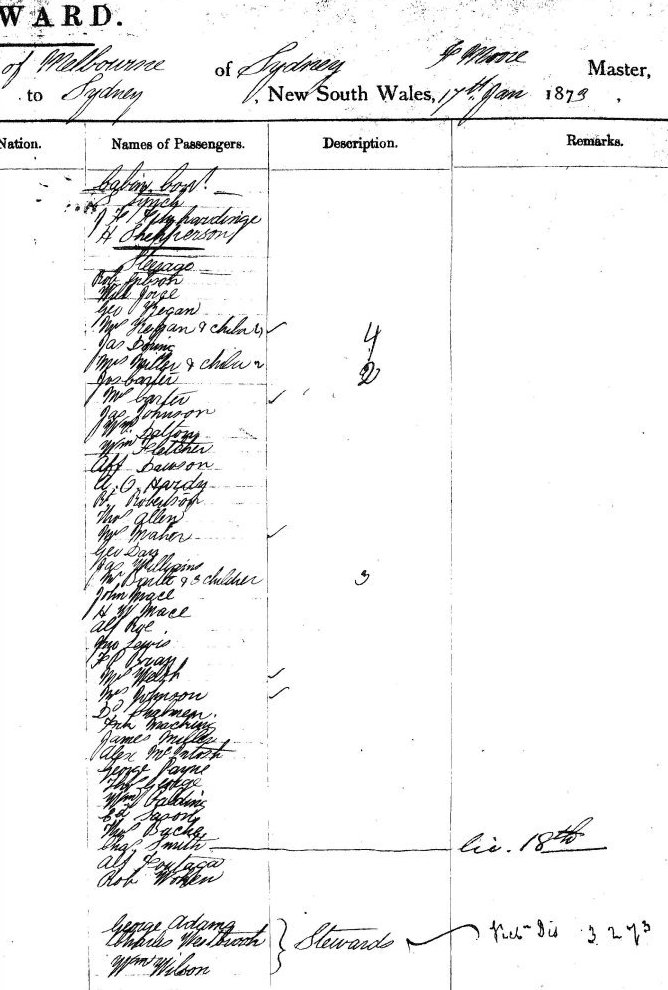 WARD.
of Melbourne of Sydney Moore Master,
to Sydney, New South Wales, 17th Jan 1873,
Nation. Names of Passengers. Description. Remarks.
Cabin
Lynch
hardinge
H Shepherson
Steerage
Rob Gibson
Will Joyce
Geo Keegan
Mrs Keegan & childn 4 ✓ 4
Jas
Mrs Miller & childn 2 2
Jos Carter
Mrs Carter ✓
Jas Johnson
Wm Dalton
Wm Fletcher
Alf Dawson
A. O. Hardy
Rt Robertson
Thos Allen
Mrs Maher ✓
Geo Day
Jas Williams
Mr & 3 children 3
John Mace
H W Mace
Alf Rye
Jno Lewis
Bray
Mrs Walsh ✓
Mrs Johnson ✓
James Miller
Alex McIntosh
George Payne
Thos George
Wm
Ed Jason
Thos Bache
Chas Smith lic. 18th
Alf
Rob
George Adams
Charles Westbrook Stewards Dis 3 2 73
Wm Wilson